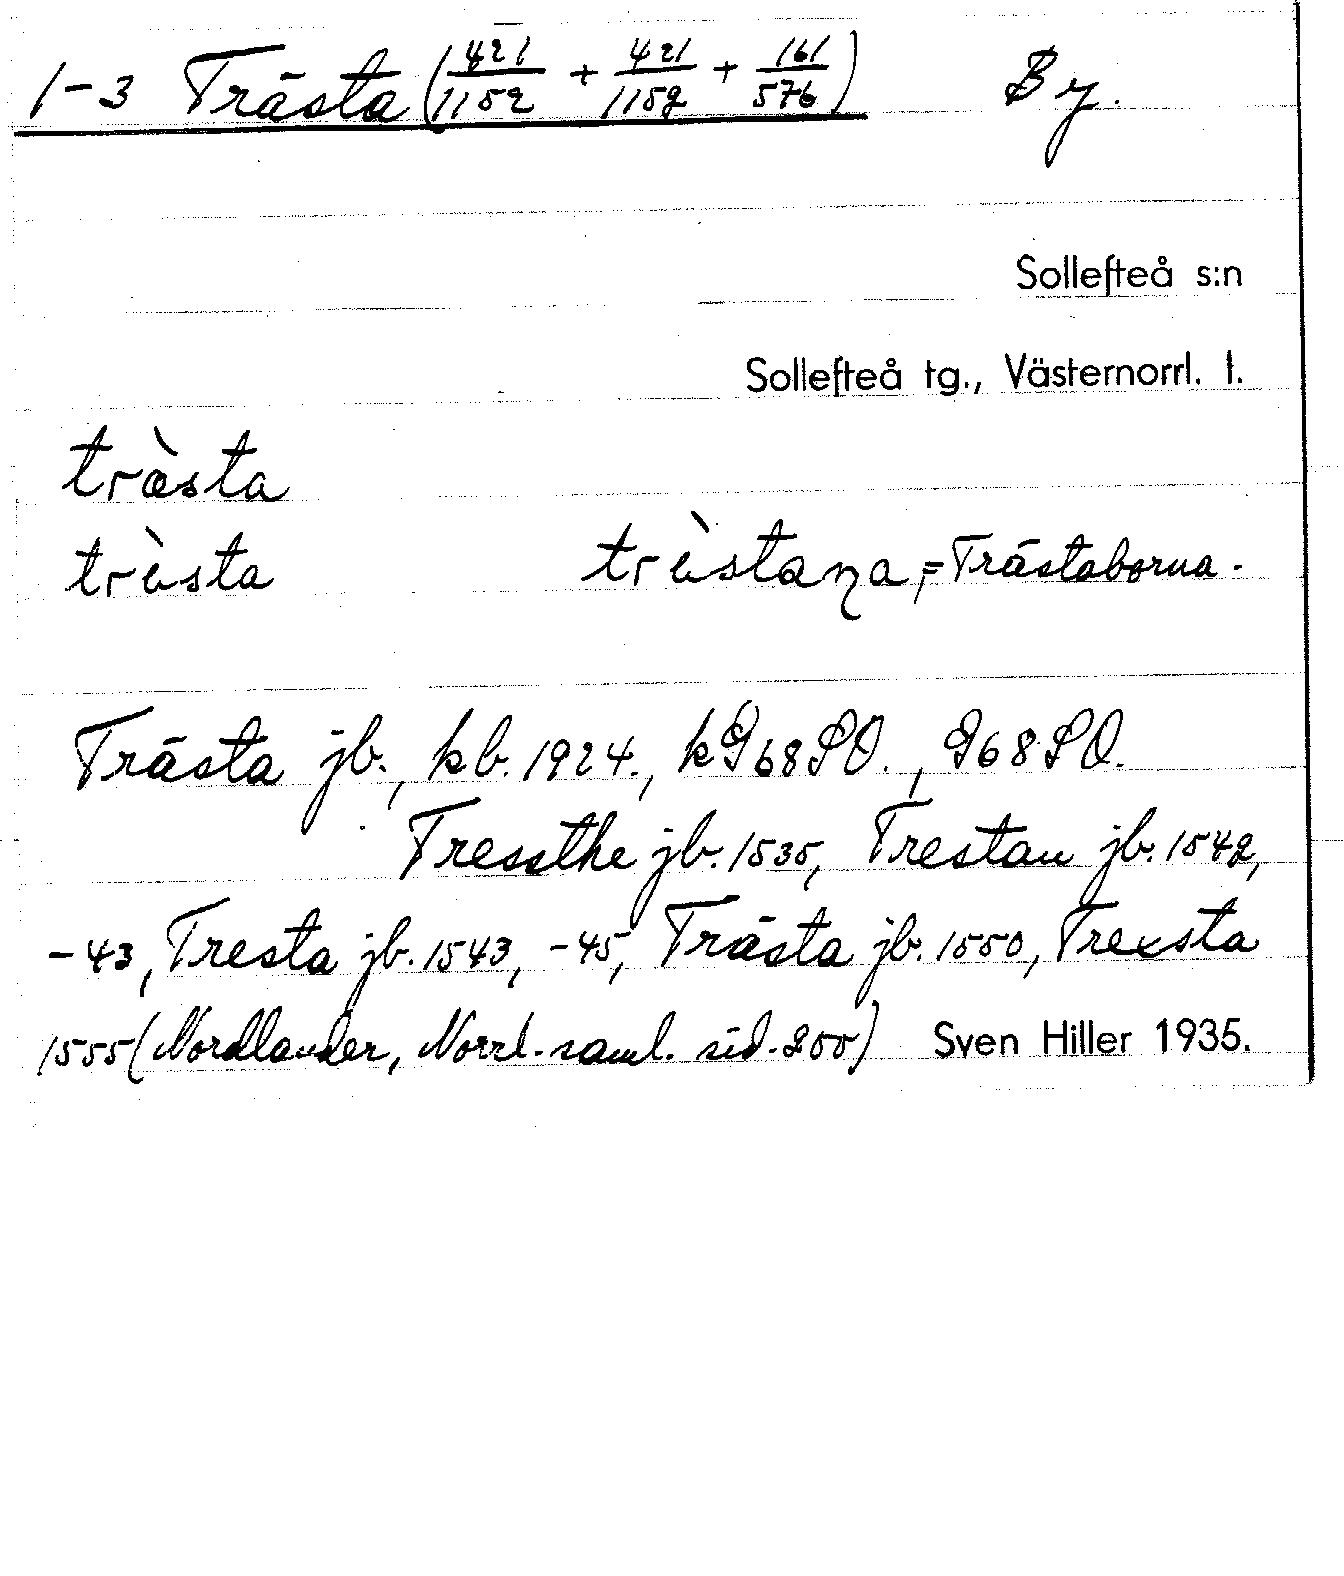 1-3 Trästa (421/1152 + 421/1152 + 161/576) By.
Sollefteå s:n
Sollefteå tg., Västernorrl. l.
træ̀sta
trèsta trèstaɳa, = Trästaborna.
Trästa jb., kb. 1924., kG68SO., G68SO.
Tressthe jb. 1535, Trestan jb. 1542,
-43, Tresta jb. 1543, -45, Trästa jb. 1550, Trexsta
1555 (Nordlander, Norrl. saml. sid. 200) Sven Hiller 1935.